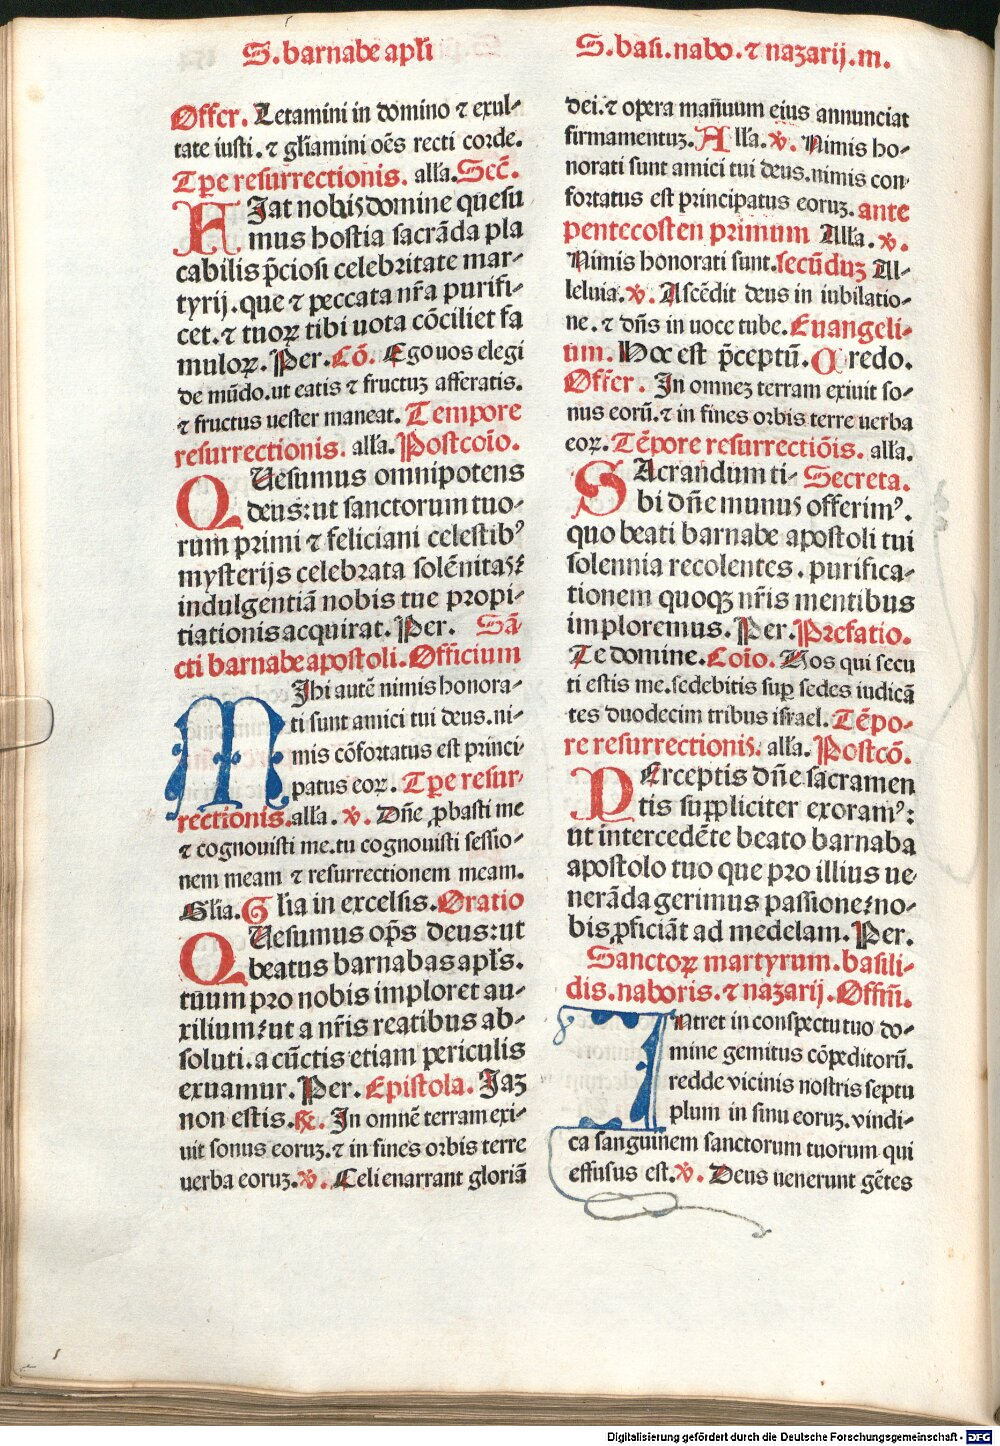 S. barnabe apłi
S. basi. nabo. ⁊ nazarij. m.
Offer. Letamini in domino ⁊ exul-
tate iusti. ⁊ głiamini oēs recti corde.
Tp̄e resurrectionis. ałła. Sec̄.
FIat nobis domine quesu
mus hostia sacrāda pla
cabilis p̄ciosi celebritate mar-
tyrij. que ⁊ peccata nr̄a purifi-
cet. ⁊ tuoꝝ tibi uota cōciliet fa
muloꝝ. Per. Cō. Ego uos elegi
de mūdo. ut eatis ⁊ fructuꝫ afferatis.
⁊ fructus uester maneat. Tempore
resurrectionis. ałła. Postcoīo.
QUesumus omnipotens
deus: ut sanctorum tuo-
rum primi ⁊ feliciani celestibꝰ
mysterijs celebrata solēnitas:
indulgentiā nobis tue propi-
tiationis acquirat. Per. Sā
cti barnabe apostoli. Officium
MIhi autē nimis honora-
ti sunt amici tui deus. ni-
mis cōfortatus est princi-
patus eoꝝ. Tp̄e resur-
rectionis. ałła. ℣. Dn̄e ꝓbasti me
⁊ cognouisti me. tu cognouisti sessio-
nem meam ⁊ resurrectionem meam.
Głia. Głia in excelsis. Oratio
QUesumus op̄s deus: ut
beatus barnabas apłs.
tuum pro nobis imploret au-
xilium: ut a nr̄is reatibus ab-
soluti. a cūctis etiam periculis
exuamur. Per. Epistola. Iaꝫ
non estis. ℟. In omnē terram exi-
uit sonus eoruꝫ. ⁊ in fines orbis terre
uerba eoruꝫ. ℣. Celi enarrant gloriā
dei. ⁊ opera man̄uum eius annunciat
firmamentuꝫ. Ałła. ℣. Nimis ho-
norati sunt amici tui deus. nimis con
fortatus est principatus eoruꝫ. ante
pentecosten primum Ałła. ℣.
Nimis honorati sunt. secūduꝫ Al-
leluia. ℣. Ascēdit deus in iubilatio-
ne. ⁊ dn̄s in uoce tube. Euangeli-
um. Hoc est p̄ceptū. Credo.
Offer. In omneꝫ terram exiuit so-
nus eorū. ⁊ in fines orbis terre uerba
eoꝝ. Tēpore resurrectiōis. ałła.
SAcrandum ti- Secreta.
bi dn̄e munus offerimꝰ.
quo beati barnabe apostoli tui
solennia recolentes. purifica-
tionem quoqꝫ nr̄is mentibus
imploremus. Per. Prefatio.
Te domine. Coīo. Uos qui secu
ti estis me. sedebitis suꝑ sedes iudicā
tes duodecim tribus israel. Tēpo-
re resurrectionis. ałła. Postcō.
PErceptis dn̄e sacramen
tis suppliciter exoramꝰ:
ut intercedēte beato barnaba
apostolo tuo que pro illius ue-
nerāda gerimus passione: no-
bis ꝓficiāt ad medelam. Per.
Sanctoꝝ martyrum. basili-
dis. naboris. ⁊ nazarij. Offm̄.
INtret in conspectu tuo do-
mine gemitus cōpeditorū.
redde vicinis nostris septu
plum in sinu eoruꝫ. vindi-
ca sanguinem sanctorum tuorum qui
effusus est. ℣. Deus uenerunt gētes
Digitalisierung gefördert durch die Deutsche Forschungsgemeinschaft - DFG